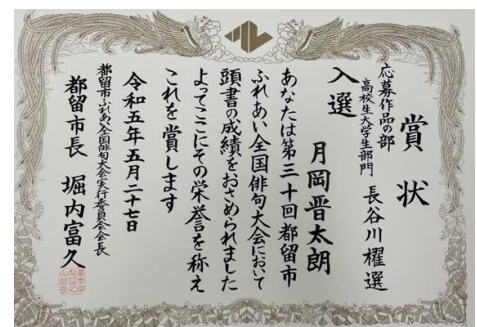 賞状
応募作品の部
高校生大学生部門
長谷川櫂選
入選
月岡晋太朗
あなたは第三十回都留市
ふれあい全国俳句大会において
頭書の成績をおさめられました
よってここにその栄誉を称え
これを賞します
令和五年五月二十七日
都留市ふれあい全国俳句大会実行委員会会長
都留市長 堀内富久